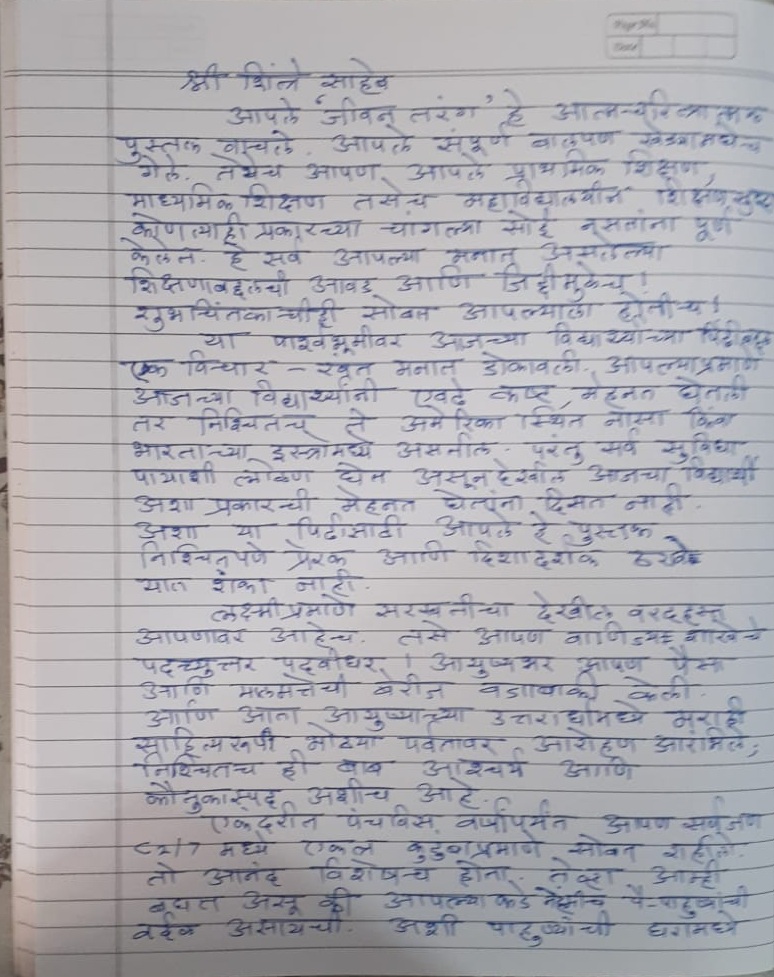 Page No.
Date
श्री शिंत्रे साहेब
आपले 'जीवन तरंग' हे आत्मचरित्रात्मक
पुस्तक वाचले. आपले संपूर्ण बालपण खेड्यामध्येच
गेले. तेथेच आपण आपले प्राथमिक शिक्षण,
माध्यमिक शिक्षण तसेच महाविद्यालयीन शिक्षण सुद्धा
कोणत्याही प्रकारच्या चांगल्या सोई नसतांना पूर्ण
केलत. हे सर्व आपल्या मनात असलेल्या
शिक्षणाबद्दलची आवड आणि जिद्दीमुळेच!
शुभचिंतकाचीही सोबत आपल्याला होतीच!
या पार्श्वभूमीवर आजच्या विद्यार्थ्यांच्या पिढीबद्दल
एक विचार – खंत मनात डोकावली. आपल्याप्रमाणे
आजच्या विद्यार्थ्यांनी एवढे कष्ट, मेहनत घेतली
तर निश्चितच ते अमेरिका स्थित नासा किंवा
भारताच्या इस्त्रोमध्ये असतील. परंतु सर्व सुविधा
पायाशी लोळण घेत असून देखील आजचा विद्यार्थी
अशा प्रकारची मेहनत घेतांना दिसत नाही.
अशा या पिढीसाठी आपले हे पुस्तक
निश्चितपणे प्रेरक आणि दिशादर्शक ठरेल
यात शंका नाही.
लक्ष्मीप्रमाणे सरस्वतीचा देखील वरदहस्त
आपणावर आहेच. तसे आपण वाणिज्य शाखेचे
पदव्युत्तर पदवीधर! आयुष्यभर आपण पैसा
आणि मालमत्तेची बेरीज वजाबाकी केली.
आणि आता आयुष्याच्या उत्तरार्धामध्ये मराठी
साहित्यरूपी मोठ्या पर्वतावर आरोहण आरंभिले,
निश्चितच ही बाब आश्चर्य आणि
कौतुकास्पद अशीच आहे.
एकंदरीत पंचविस वर्षापर्यंत आपण सर्वजण
मध्ये एकत्र कुटुंबाप्रमाणे सोबत राहीलो.
तो आनंद विशेषच होता. तेव्हा आम्ही
बघत असू की आपल्याकडे नेहमीच पै-पाहुण्यांची
वर्दळ असायची. अशी पाहुण्यांची घरामध्ये